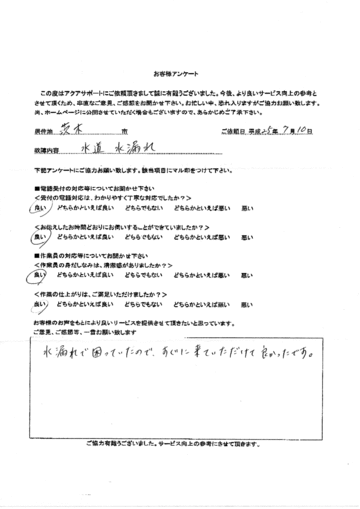 お客様アンケート
この度はアクアサポートにご依頼頂きまして誠に有難うございました。今後、より良いサービス向上の参考と
させて頂くため、率直なご意見、ご感想をお聞かせ下さい。お忙しい中、恐れ入りますがご協力お願い致します。
尚、ホームページに公開させていただく場合もございますので、あらかじめご了承下さい。
居住地 茨木 市 ご依頼日 平成25年 7月10日
故障内容 水道 水漏れ
下記アンケートにご協力お願い致します。該当項目にマル印をつけて下さい。
■電話受付の対応等についてお聞かせ下さい
<受付の電話対応は、わかりやすく丁寧な対応でしたか?>
良い どちらかといえば良い どちらでもない どちらかといえば悪い 悪い
<お伝えしたお時間どおりにお伺いすることができていましたか?>
良い どちらかといえば良い どちらでもない どちらかといえば悪い 悪い
■作業員の対応等についてお聞かせ下さい
<作業員の身だしなみは、清潔感がありましたか?>
良い どちらかといえば良い どちらでもない どちらかといえば悪い 悪い
<作業の仕上がりは、ご満足いただけましたか?>
良い どちらかといえば良い どちらでもない どちらかといえば悪い 悪い
お客様のお声をもとにより良いサービスを提供させて頂きたいと思っています。
ご意見、ご感想等、一言お願い致します
水漏れで困っていたので、すぐに来ていただけて良かったです。
ご協力有難うございました。サービス向上の参考にさせて頂きます。